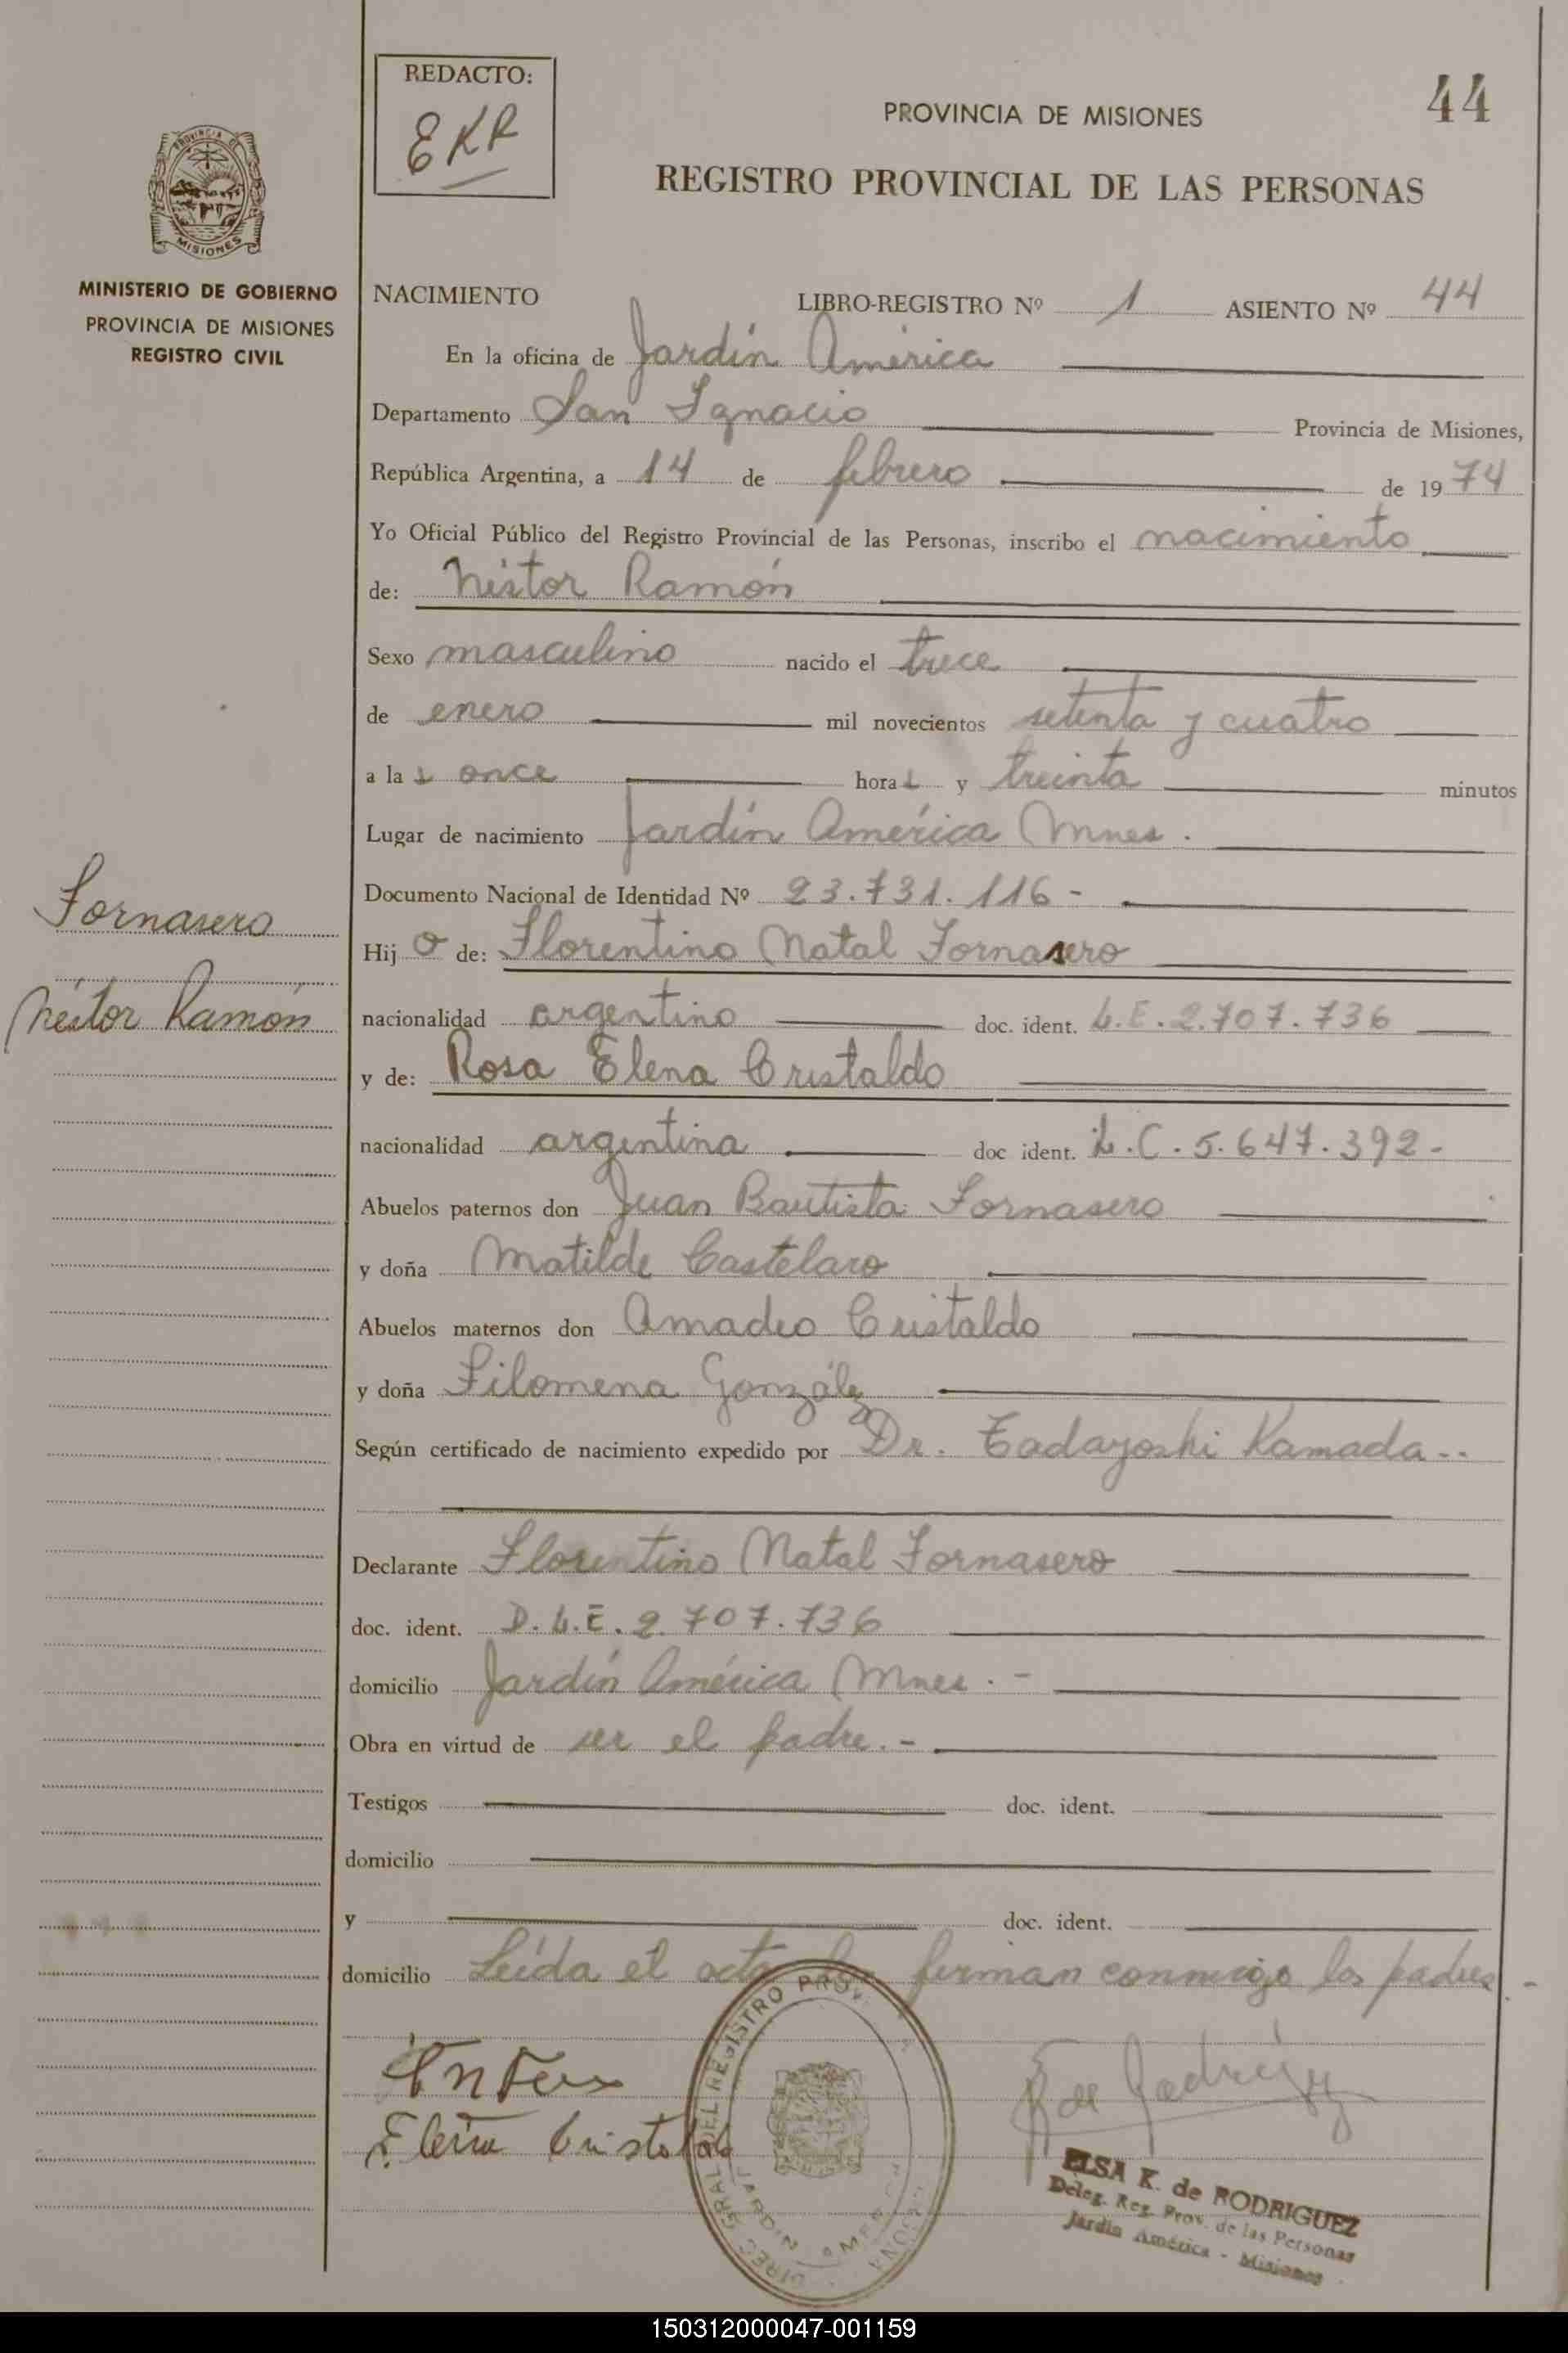 REDACTO:
EKR
PROVINCIA DE MISIONES
44
REGISTRO PROVINCIAL DE LAS PERSONAS
PROVINCIA
MISIONES
MINISTERIO DE GOBIERNO
PROVINCIA DE MISIONES
REGISTRO CIVIL
NACIMIENTO LIBRO-REGISTRO Nº 1 ASIENTO Nº 44
En la oficina de Jardín América
Departamento San Ignacio Provincia de Misiones,
República Argentina, a 14 de febrero de 1974
Yo Oficial Público del Registro Provincial de las Personas, inscribo el nacimiento
de: Néstor Ramón
Sexo masculino nacido el trece
de enero mil novecientos setenta y cuatro
a las once horas y treinta minutos
Lugar de nacimiento Jardín América Mnes.
Documento Nacional de Identidad Nº 23.731.116-
Fornasero
Néstor Ramón
Hijo de: Florentino Natal Fornasero
nacionalidad argentino doc. ident. L.E. 2.707.736
y de: Rosa Elena Cristaldo
nacionalidad argentina doc ident. L.C. 5.647.392-
Abuelos paternos don Juan Bautista Fornasero
y doña Matilde Castelaro
Abuelos maternos don Amadeo Cristaldo
y doña Filomena González
Según certificado de nacimiento expedido por Dr. Tadayoshi Kamada--
Declarante Florentino Natal Fornasero
doc. ident. D.L.E. 2.707.736
domicilio Jardín América Mnes.-
Obra en virtud de ser el padre.-
Testigos doc. ident.
domicilio
y doc. ident.
domicilio Leída el acta firman conmigo los padres.-
Elena Cristaldo
DIREC. GRAL. DEL REGISTRO PROV.
JARDIN AMERICA
ELSA K. de RODRIGUEZ
Deleg. Reg. Prov. de las Personas
Jardín América - Misiones
150312000047-001159